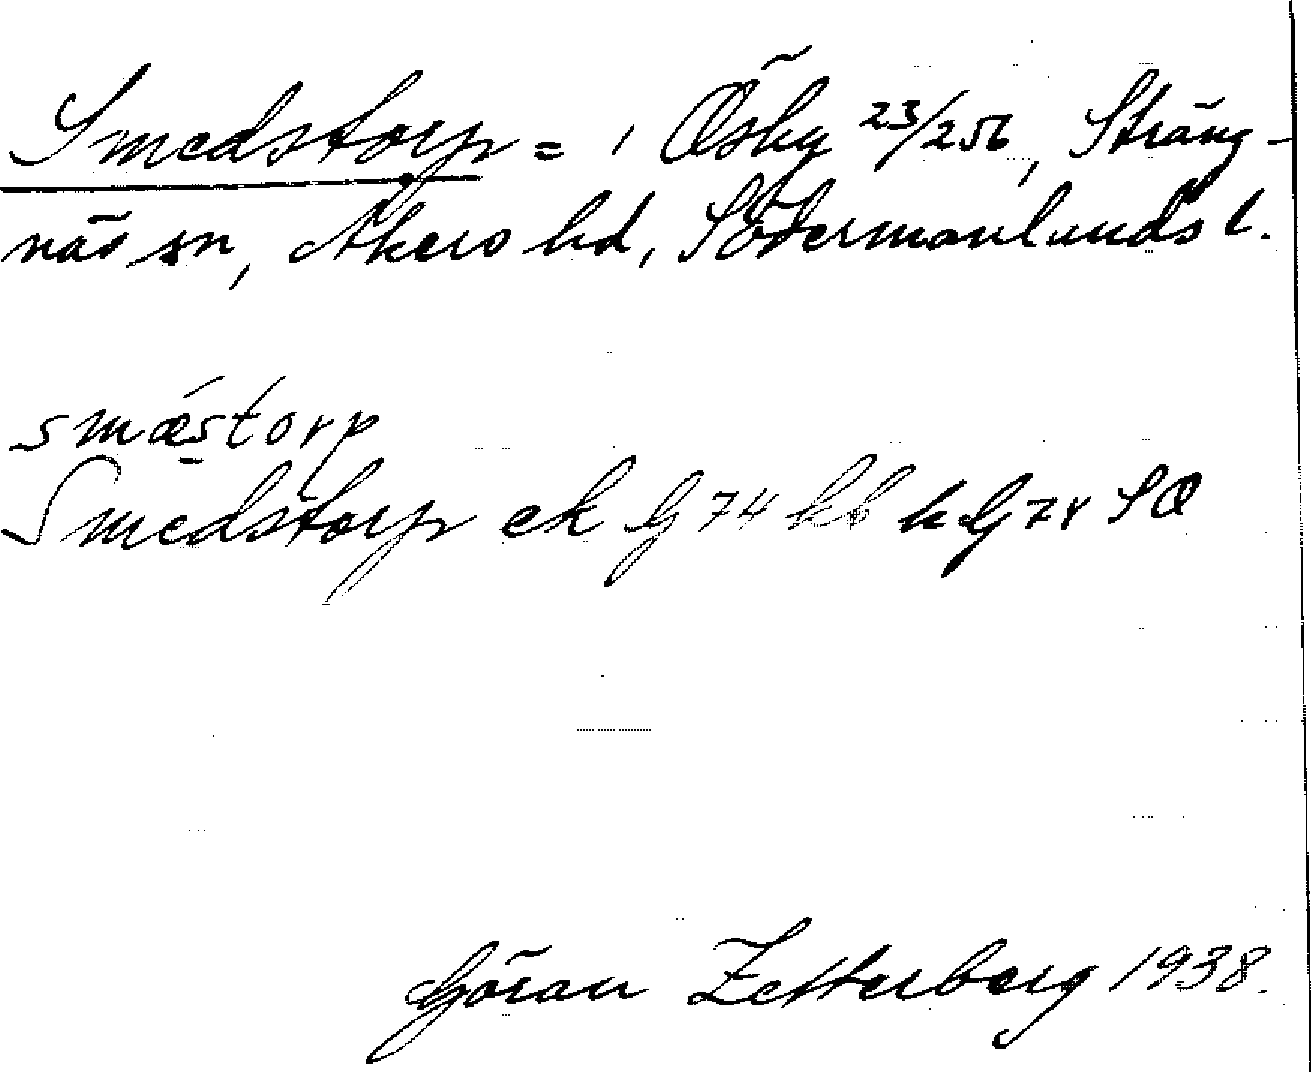 Smedstorp = 1 Ösby 23/256, Sträng-
näs sn, Åkers hd, Södermanlands l.
smæstorp
Smedstorp ek G 74 kb k G 74 SO
Göran Zetterberg 1938.